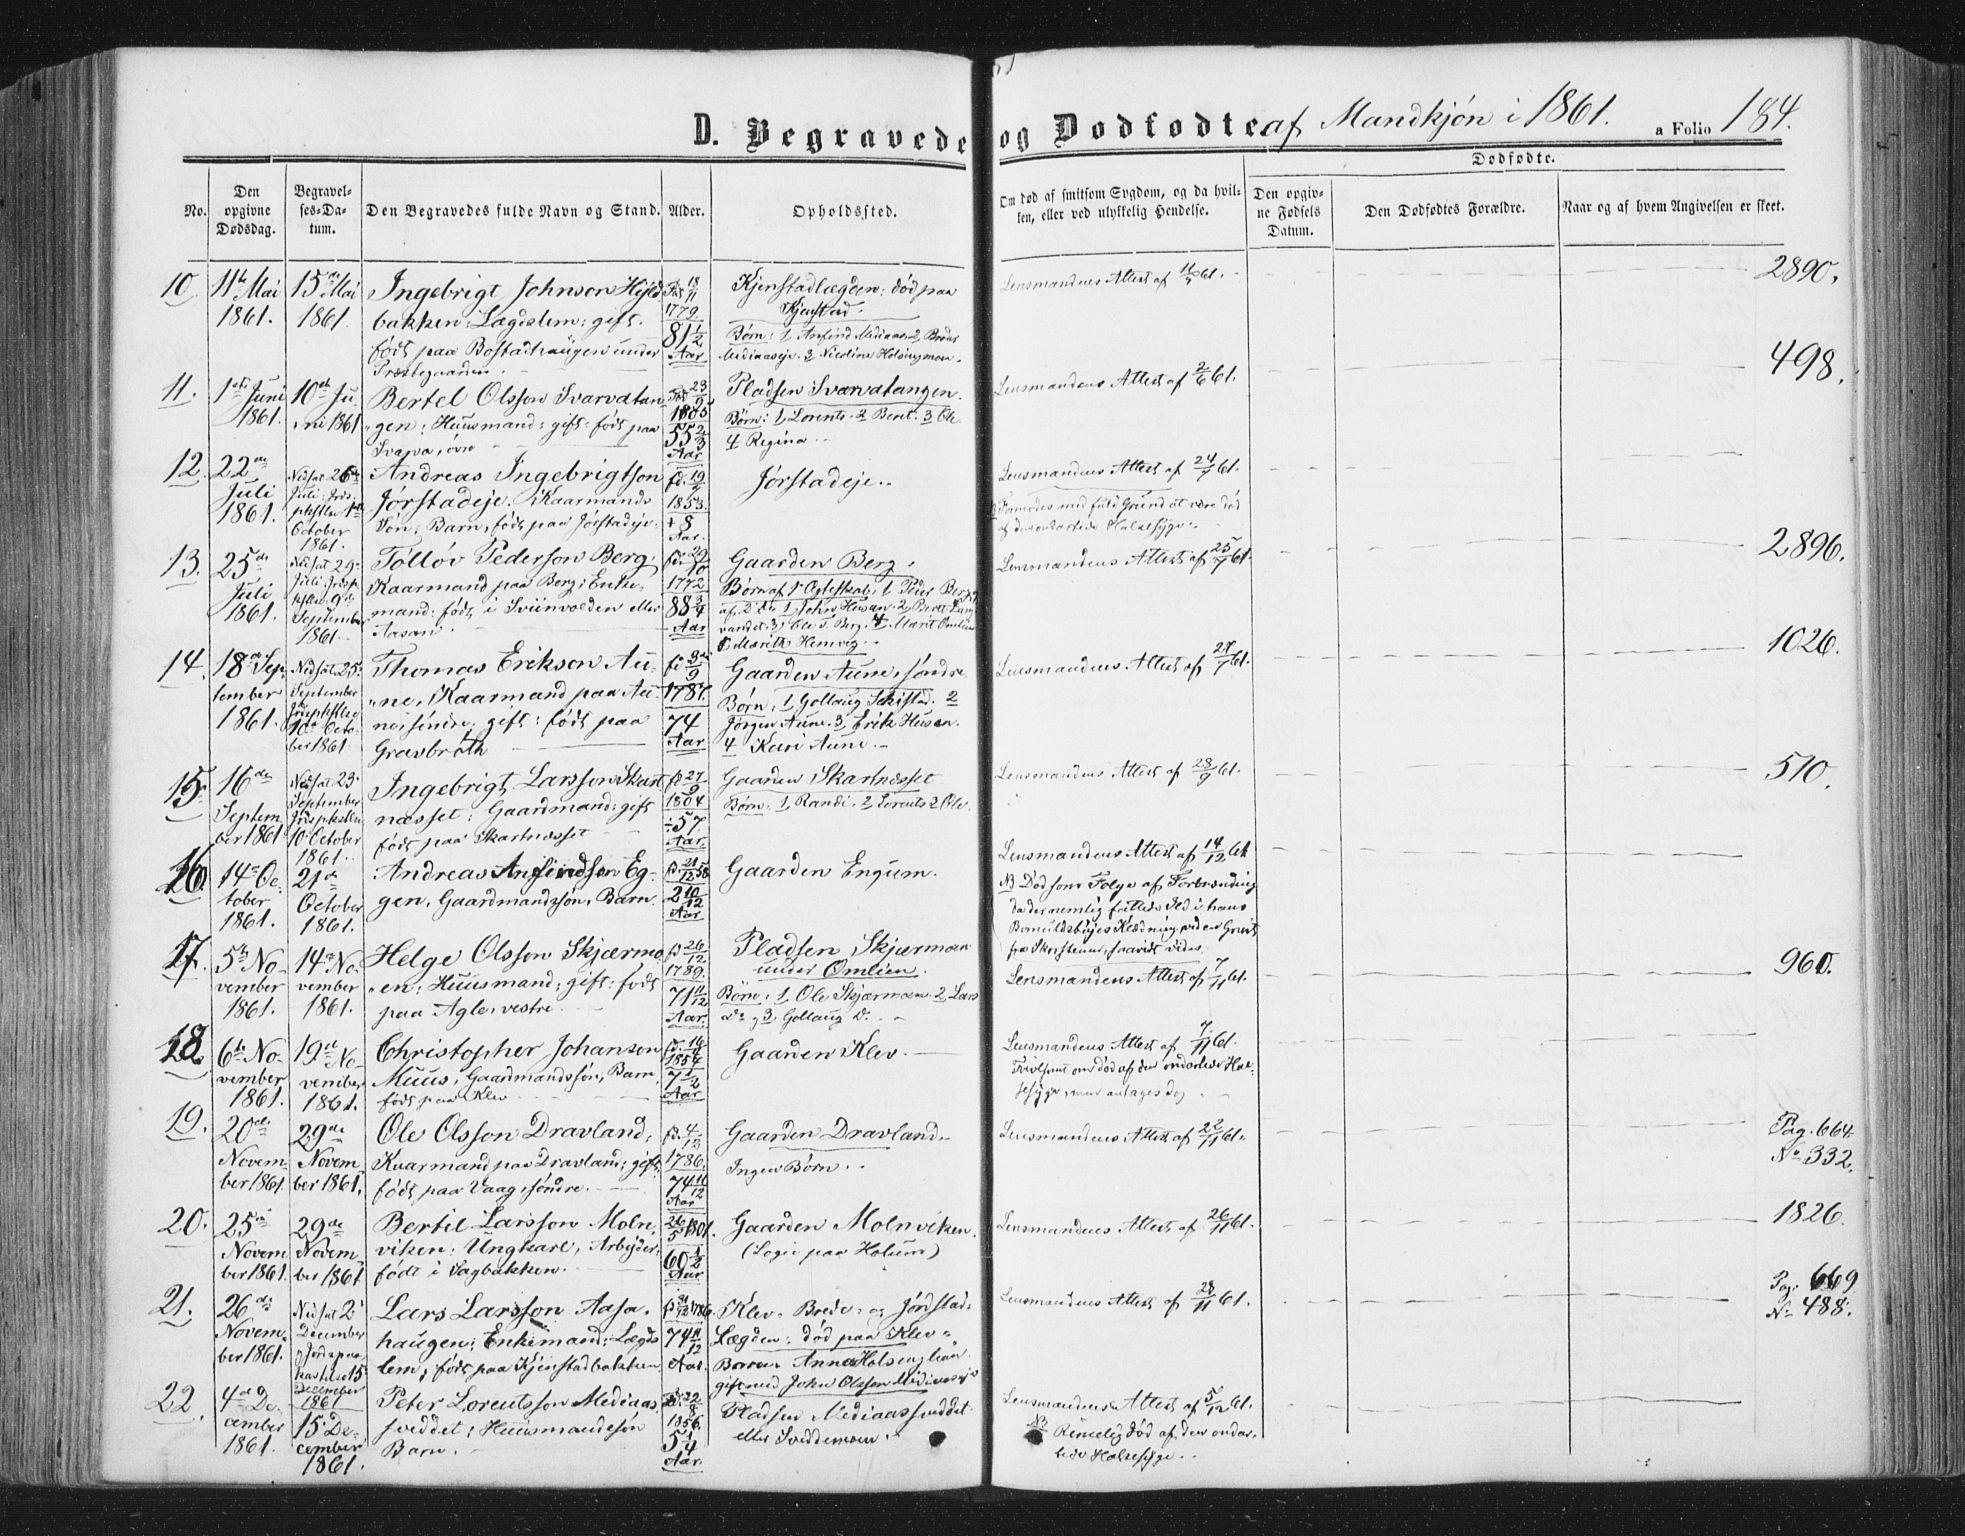 D. Begravede og Dødfødte af Mandkjøn i 1861. a Folio 184.
No.
Den opgivne Dødsdag.
Begravelses-Datum.
Den Begravedes fulde Navn og Stand.
Alder.
Opholdssted.
Om død af smitsom Sygdom, og da hvilken, eller ved ulykkelig Hendelse.
Dødfødte.
Den opgivne Fødsels Datum.
Den Dødfødtes Forældre.
Naar og af hvem Angivelsen er skeet.
10. 11te Mai 1861. 15de Mai 1861.
Ingebrigt Johnson Hejld
bakken: Lægdslem: gift.
født paa Bostadhaugen under
Præstegaarden.
18/11 1779. 81 1/2 Aar
Kjenstadlægden: død paa
Kjenstad.
Børn: 1 Arnfind Mediaas. 2
Mediaaseje. 3 Nicoline Holsingmoen.
Lensmandens Attest af 61.
2890.
11. 1ste Juni 1861. 10de Juni 1861
Bertel Olsson Svarvatan
gen: Huusmand: gift: født paa
Svarva, øvre
23/9 1805 55 2/3 Aar
Pladsen Svarvatangen.
Børn: 1 Lorents. 2 Beret. 3 Ole
4 Regina.
Lensmandens Attest af 2/6 61.
498.
12. 22de Juli 1861. Nedsat 26de Juli. Jordspkstlse 1ste October 1861.
Andreas Ingebrigtson
Jørstadeje. Kaarmands
Søn: Barn, født paa Jørstadeje.
fd. 19/7 1853. + 8 Aar.
Jørstadeje.
Lensmandens Attest af 24/7 61.
Formodes med fuld Grund at være død
af den ondartede Halsesyge.
13. 25de Juli 1861. Nedsat 29 Juli, 9de September 1861.
Tolløv Pederson Berg,
Kaarmand paa Berg: Enke-
mand: født i Sviinvolden eller
Aasan.
fd. 29/10 1772 88 3/4 Aar
Gaarden Berg.
Børn af 1 Ægteskab: 1 Peder Berg
af 2 do: 1 John Husan. 2 Beret
vandet. 3 Ole T. Berg. 4 Marit Omlien
Lensmandens Attest af 25/7 61.
2896.
14. 18de September 1861. Nedsat 25 September 10de October 1861
Thomas Erikson Au-
ne, Kaarmand paa Au-
ne, søndre, gift: født paa
Gravbrøth
fd 3/9 1787. 74 Aar
Gaarden Aune, søndre
Børn: 1 Gollaug Schistad. 2
Jørgen Aune. 3 Erik Husan.
4 Kari Aune.
Lensmandens Attest af 27/7 61.
1026.
15. 16de September 1861. Nedsat 23 September 10 October 1861.
Ingebrigt Larsson Skart
næsset: Gaardmand: gift
født paa Skartnæsset
fd 27/9 1804 ÷57. Aar.
Gaarden Skartnæsset
Børn. 1 Randi. 2 Lorents 2 Ole.
Lensmandens Attest af 28/9 61.
510.
16. 14de October 1861. 21de October 1861.
Andreas Arnfindson Eg-
gen, Gaardmandssøn, Barn.
fd. 21/12 58 2 10/12 Aar
Gaarden Engum.
Lensmandens Attest af 14/12 61
NB Død som Følge af Forbrænding
da der nemlig fattede Ild i hans
Bomuldstøjes Klædning ved en Gnist
fra Skorstenen, saavidt vides.
17. 5te November 1861. 14de November 1861.
Helge Olsson Skjærmo
en: Huusmand: gift: født
paa Agle, vestre.
fd 26/12 1789. 71 11/12 Aar.
Pladsen Skjærmoen
under Omlien.
Børn: 1 Ole Skjærmoen. 2 Lars
Do, 3 Gollaug Do.
Lensmandens Attest af 7/11 61.
960.
18. 6te November 1861. 19de November 1861.
Christopher Johanson
Muus, Gaardmandssøn, Barn,
født paa Klev
fd. 16/4 1854 7 1/2 Aar
Gaarden Klev.
Lensmandens Attest af 7/11 61.
Tvivlsomt om død af den ondartede Hal-
sesyge, men antages dog
19. 20de November 1861. 29de November 1861.
Ole Olsson Dravland,
Kaarmand paa Dravland; gift
født paa Vaag, søndre.
fd. 4/12 1786. 74 11/12 Aar
Gaarden Dravland.
Ingen Børn.
Lensmandens Attest af 22/11 61.
Pag. 664. No 332.
20. 25de November 1861. 29de November 1861
Bertil Larsson Moln
viken: Ungkarl, Arbejder,
født i Sagbakken.
26/5 1801. 60 1/2 Aar
Gaarden Molnviken.
(Logie paa Holum)
Lensmandens Attest af 26/11 61.
1826.
21. 26de November 1861. Nedsat 2 December 15 December 1861
Lars Larsson Aasa-
haugen: Enkemand: Lægds
lem, født paa Kjenstadbakken
31/12 1786. 74 11/12 Aar.
Klev- Brede- og Jørstad-
Lægden: død paa Klev
Barn: Anna Holsinglian
gift med John Olsson Mediaaseje
Lensmandens Attest af 28/11 61.
Pag: 669 No 488.
22. 4de December 1861. 15 December 1861.
Peter Lorentsson Mediaas
sveddet: Huusmandssøn
Barn.
22/8 1856. 5 1/4 Aar.
Pladsen Mediaassveddet
eller Sveddemoen.
Lensmandens Attest af 5/12 61.
NB Rimelig død af den ondar-
tede Halsesyge.